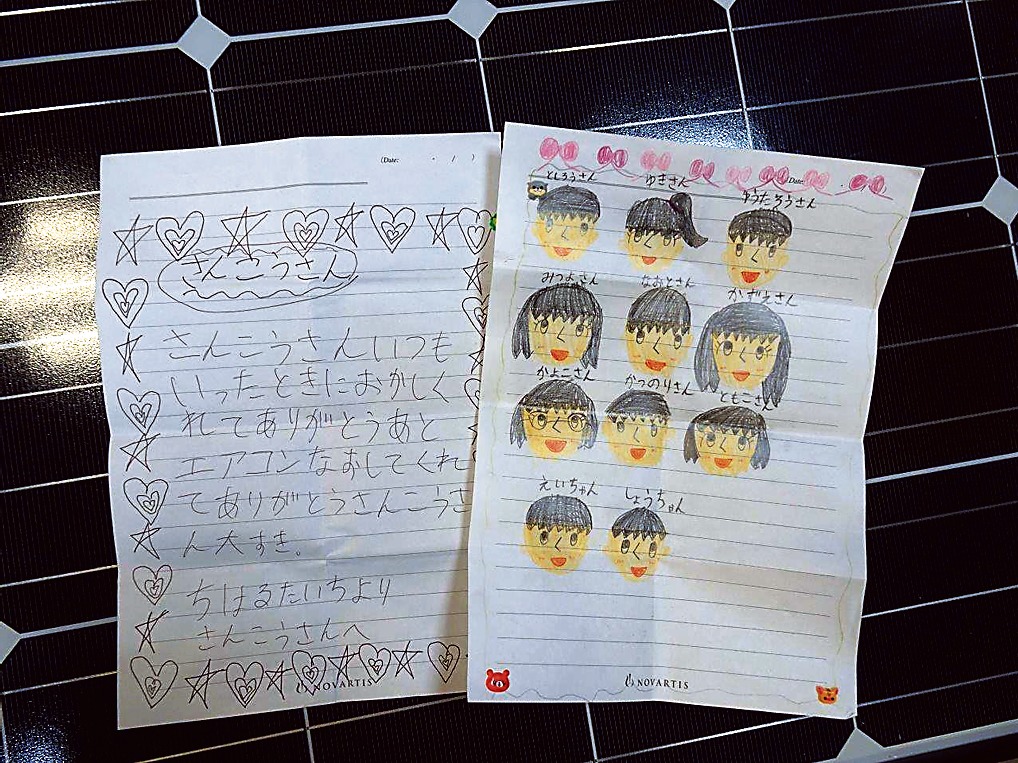 (Date: ・ / )
さんこうさん
さんこうさんいつも
いったときにおかしく
れてありがとうあと
エアコンなおしてくれ
てありがとうさんこうさ
ん大すき。
ちはるたいちより
さんこうさんへ
NOVARTIS
Date:
としろうさん ゆきさん ゆうたろうさん
みつよさん なおとさん かずえさん
かよこさん かつのりさん ともこさん
えいちゃん しょうちゃん
NOVARTIS